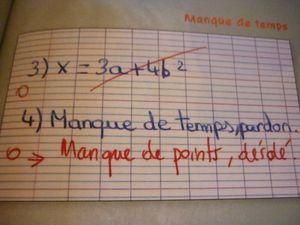 Manque de temps
3) x = 3a + 4b²
0
4) Manque de temps, pardon.
0 → Manque de points, désolé